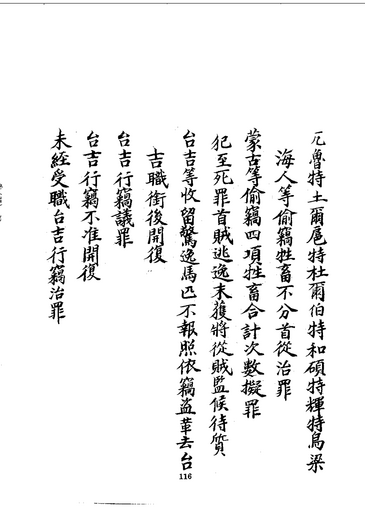 厄魯特土爾扈特杜爾伯特和碩特輝特烏梁
海人等偷竊牲畜不分首從治罪
蒙古等偷竊四項牲畜合計次數擬罪
犯至死罪首賊逃逸未獲將從賊監候待質
台吉等收留驚逸馬匹不報照依竊盜革去台
吉職銜後開復
台吉行竊議罪
台吉行竊不准開復
未經受職台吉行竊治罪
116